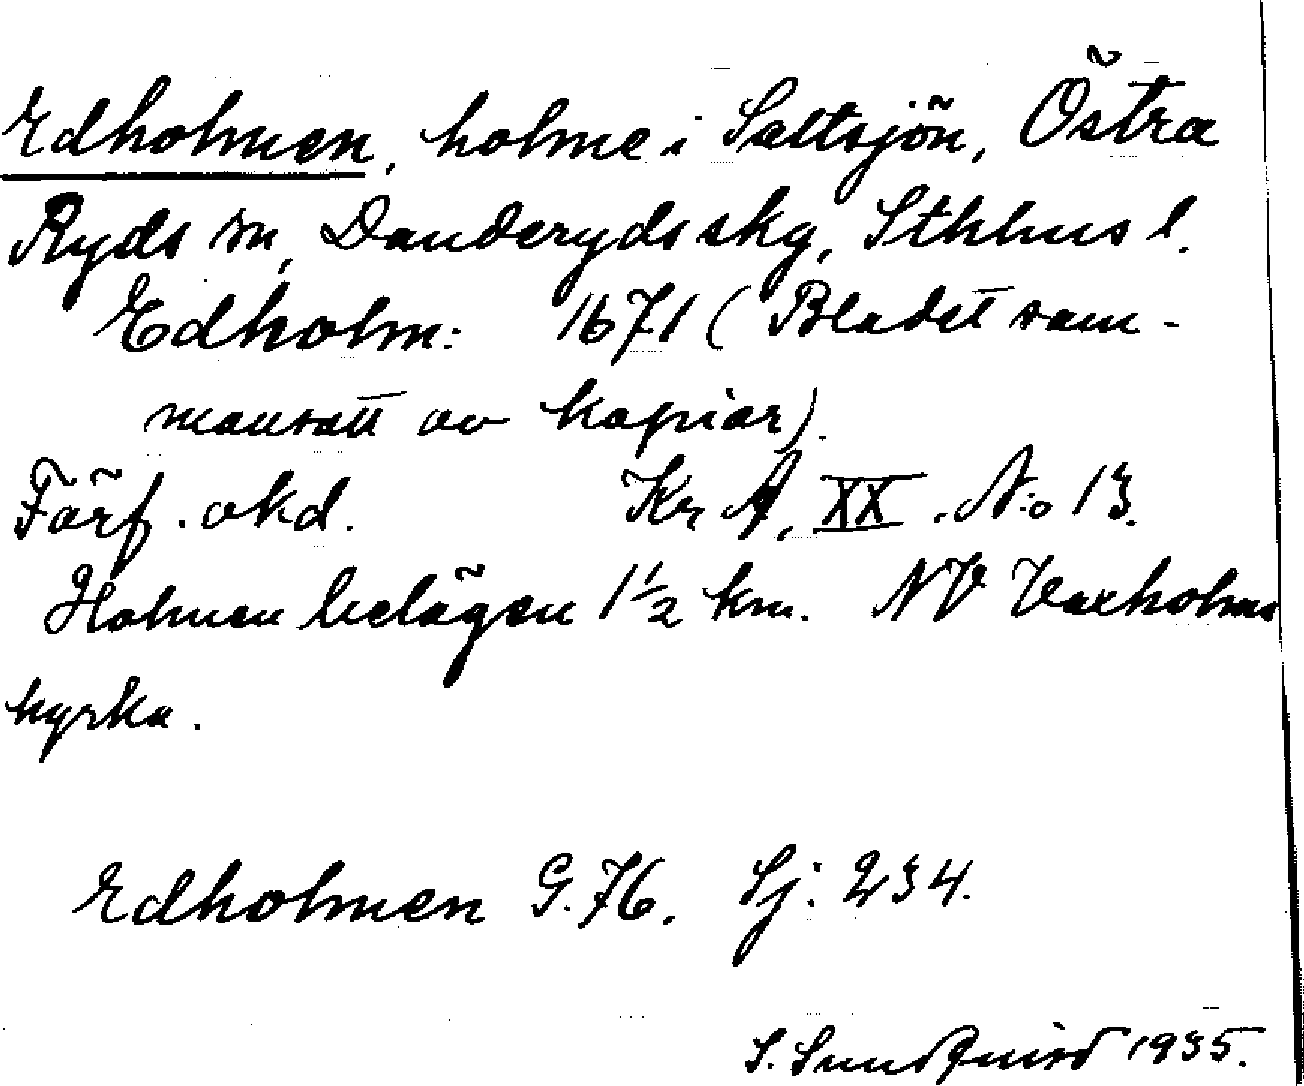 Edholmen, holme i Saltsjön, Östra
Ryds sn, Danderyds skg, Sthlms l.
Edholm: 1671 (Bladet sam-
mansatt av kopior).
Förf. okd. Kr A, XX. No 13.
Holmen belägen 1 1/2 km. NV Vaxholms
kyrka.
Edholmen G. 76. Sj: 234.
S. Sundquist 1935.